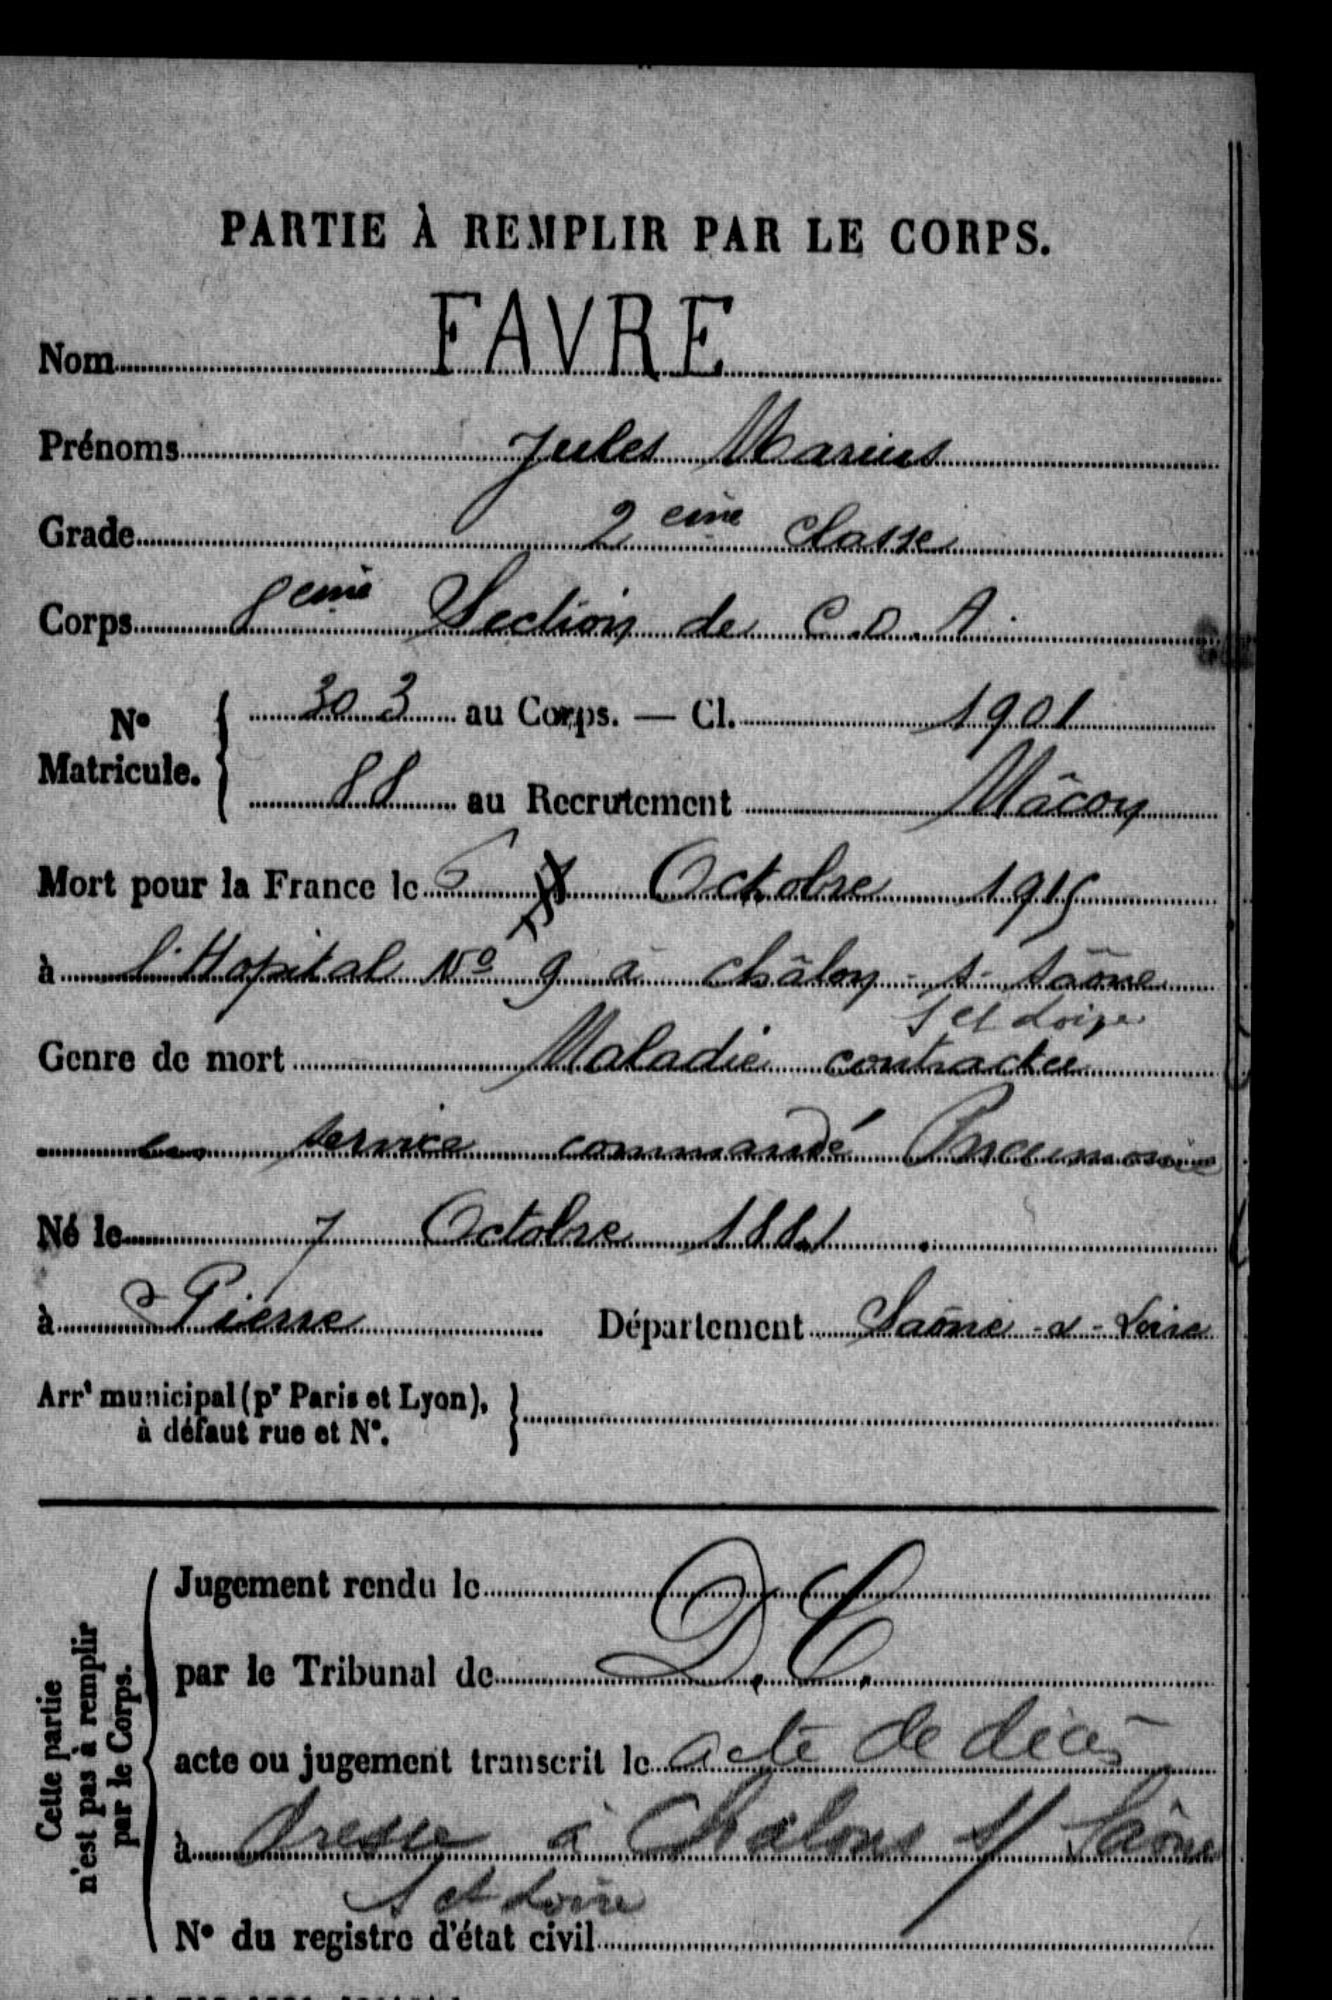 PARTIE À REMPLIR PAR LE CORPS.
Nom FAVRE
Prénoms Jules Marius
Grade 2 eme Classe
Corps 8 eme Section de C.O.A.
N° Matricule. 303 au Corps. — Cl. 1901
88 au Recrutement Mâcon
Mort pour la France le 6 Octobre 1915
à l'Hopital N° 9 à châlon-s-Saône
S et Loire
Genre de mort Maladie contractée
en service commandé Pneumonie
Né le 7 Octobre 1881
à Pierre Département Saône-&-Loire
Arrt municipal (pr Paris et Lyon), à défaut rue et N°.
Cette partie n'est pas à remplir par le Corps.
Jugement rendu le
par le Tribunal de D.C.
acte ou jugement transcrit le acte de décès
à dressé à Chalons s/ Saône
S et Loire
N° du registre d'état civil